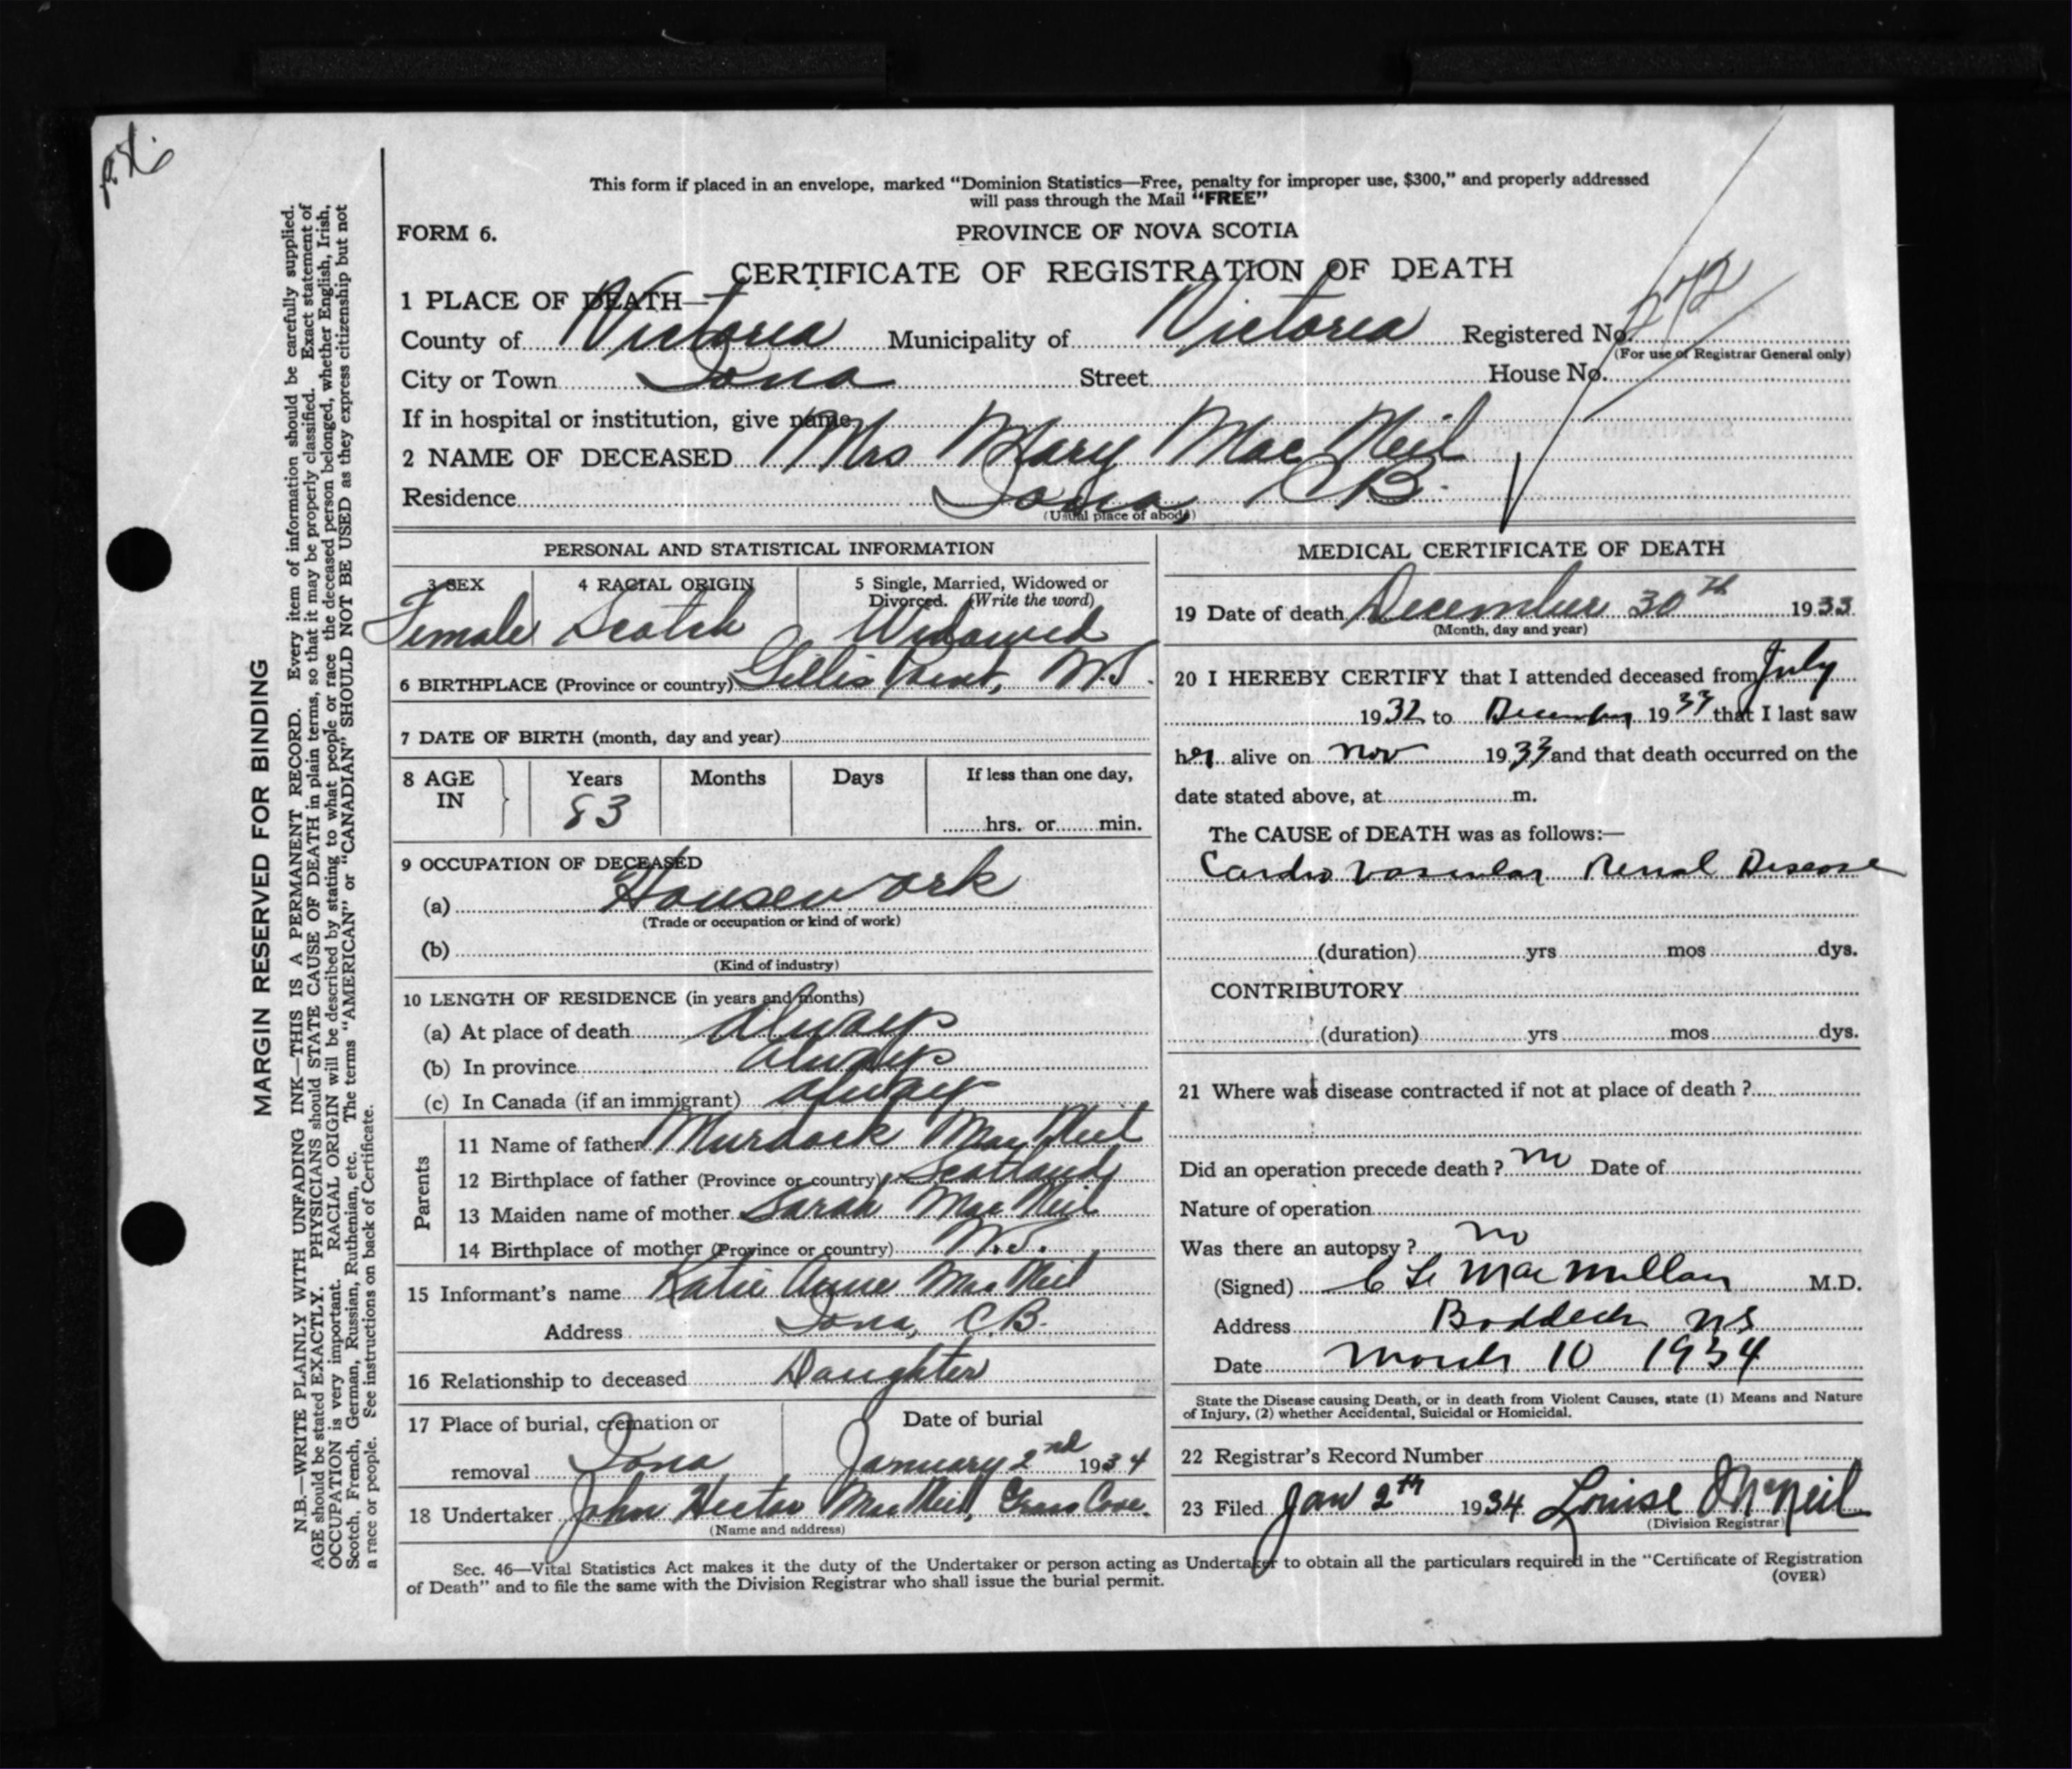 This form if placed in an envelope, marked “Dominion Statistics—Free, penalty for improper use, $300,” and properly addressed
will pass through the Mail “FREE”
FORM 6.
PROVINCE OF NOVA SCOTIA
CERTIFICATE OF REGISTRATION OF DEATH
1 PLACE OF DEATH—
272
County of Victoria Municipality of Victoria Registered No.
(For use of Registrar General only)
City or Town Iona Street House No.
If in hospital or institution, give name
2 NAME OF DECEASED Mrs Mary MacNeil
Residence Iona, CB.
(Usual place of abode)
PERSONAL AND STATISTICAL INFORMATION
3 SEX 4 RACIAL ORIGIN 5 Single, Married, Widowed or
Divorced. (Write the word)
Female Scotch Widowed
6 BIRTHPLACE (Province or country) Gillis Point, N.S.
7 DATE OF BIRTH (month, day and year)
8 AGE IN Years Months Days If less than one day,
83
hrs. or min.
9 OCCUPATION OF DECEASED
(a) Housework
(Trade or occupation or kind of work)
(b)
(Kind of industry)
10 LENGTH OF RESIDENCE (in years and months)
(a) At place of death always
(b) In province always
(c) In Canada (if an immigrant) always
Parents
11 Name of father Murdock MacNeil
12 Birthplace of father (Province or country) Scotland
13 Maiden name of mother Sarah MacNeil
14 Birthplace of mother (Province or country) N.S.
15 Informant's name Katie Anne MacNeil
Address Iona, C.B.
16 Relationship to deceased Daughter
17 Place of burial, cremation or Date of burial
removal Iona January 2nd 1934
18 Undertaker John Hector MacNeil, Grass Cove.
(Name and address)
MEDICAL CERTIFICATE OF DEATH
19 Date of death December 30th 1933
(Month, day and year)
20 I HEREBY CERTIFY that I attended deceased from July
1932 to December 1933 that I last saw
her alive on Nov 1933 and that death occurred on the
date stated above, at m.
The CAUSE of DEATH was as follows:—
Cardio Vascular Renal Disease
(duration) yrs mos dys.
CONTRIBUTORY
(duration) yrs mos dys.
21 Where was disease contracted if not at place of death?
Did an operation precede death? no Date of
Nature of operation
Was there an autopsy? no
(Signed) C L MacMillan M.D.
Address Baddeck NS
Date March 10 1934
State the Disease causing Death, or in death from Violent Causes, state (1) Means and Nature
of Injury, (2) whether Accidental, Suicidal or Homicidal.
22 Registrar's Record Number
23 Filed Jan 2th 1934 Louise McNeil
(Division Registrar)
Sec. 46—Vital Statistics Act makes it the duty of the Undertaker or person acting as Undertaker to obtain all the particulars required in the “Certificate of Registration
of Death” and to file the same with the Division Registrar who shall issue the burial permit.
(OVER)
MARGIN RESERVED FOR BINDING
N.B.—WRITE PLAINLY WITH UNFADING INK—THIS IS A PERMANENT RECORD. Every item of information should be carefully supplied.
AGE should be stated EXACTLY. PHYSICIANS should STATE CAUSE OF DEATH in plain terms, so that it may be properly classified. Exact statement of
OCCUPATION is very important. RACIAL ORIGIN will be described by stating to what people or race the deceased person belonged, whether English, Irish,
Scotch, French, German, Russian, Ruthenian, etc. The terms “AMERICAN” or “CANADIAN” SHOULD NOT BE USED as they express citizenship but not
a race or people. See instructions on back of Certificate.